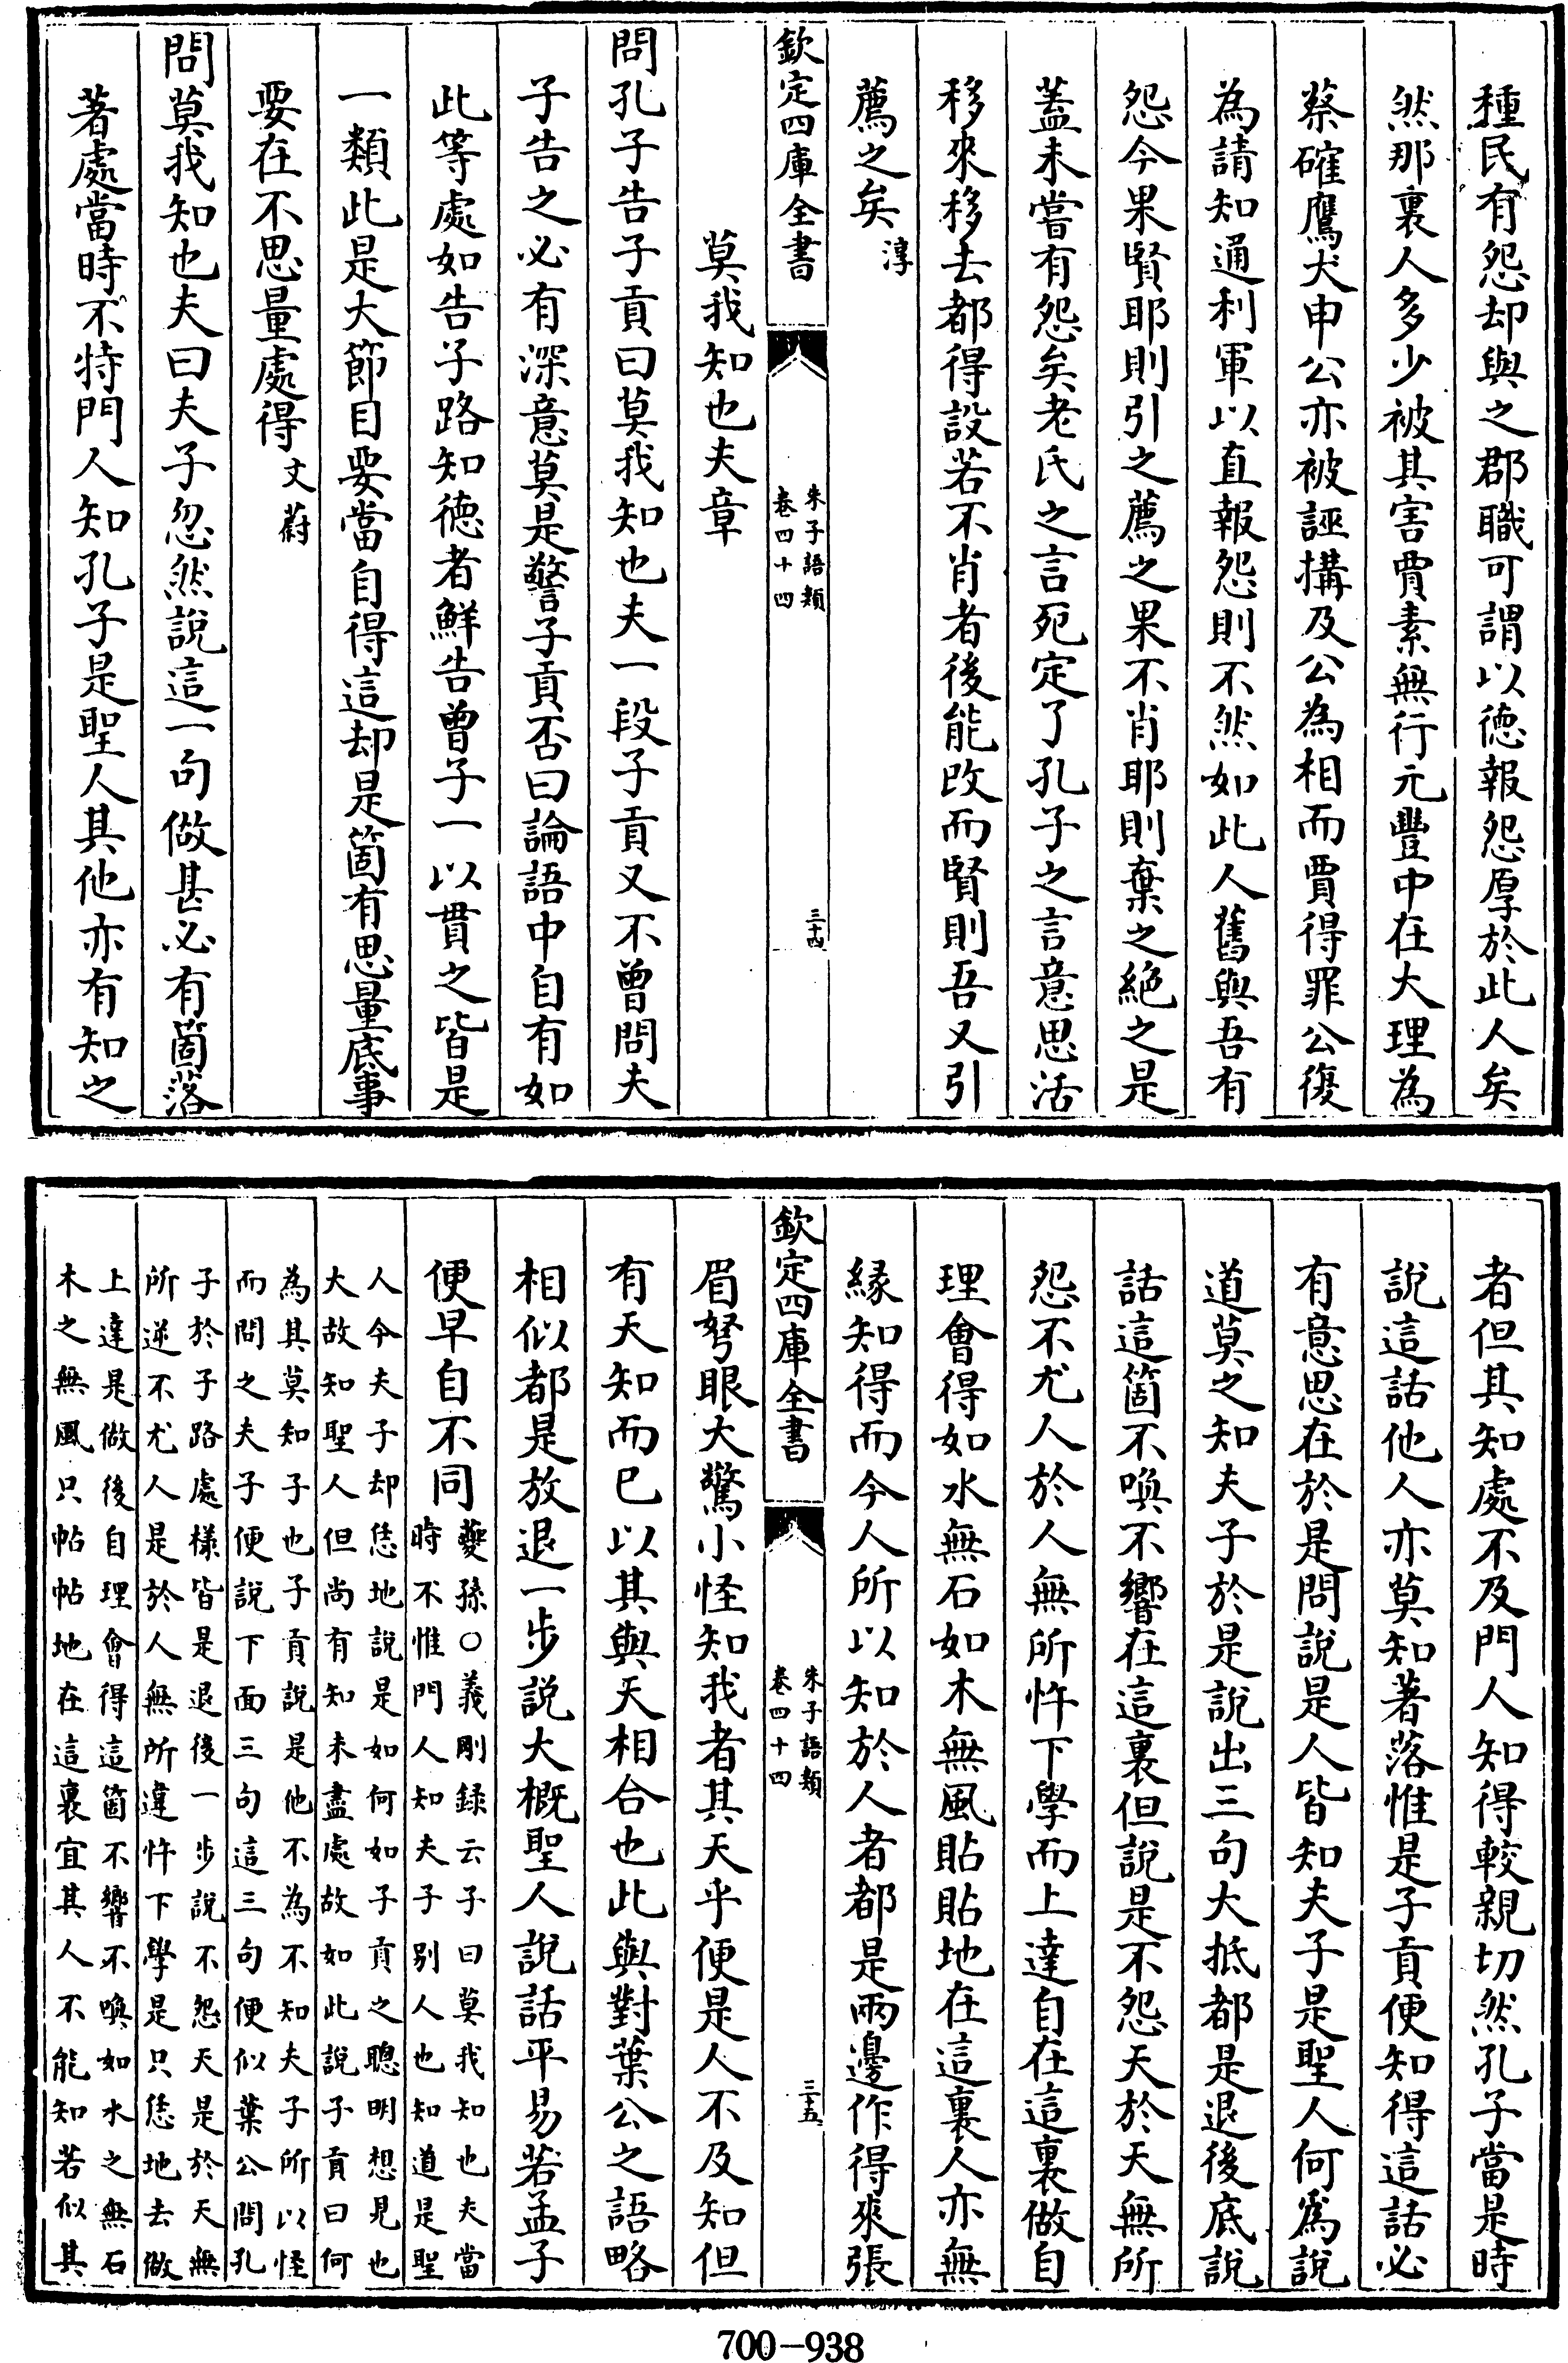 種民有怨却與之郡職可謂以徳報怨厚於此人矣
然那裏人多少被其害賈素無行元豐中在大理為
蔡確鷹犬申公亦被誣搆及公為相而賈得罪公復
為請知通利軍以直報怨則不然如此人舊與吾有
怨今果賢耶則引之薦之果不肖耶則棄之絶之是
蓋未嘗有怨矣老氏之言死定了孔子之言意思活
移來移去都得設若不肖者後能改而賢則吾又引
薦之矣淳
欽定四庫全書
朱子語類
卷四十四
三十四
莫我知也夫章
問孔子告子貢曰莫我知也夫一段子貢又不曾問夫
子告之必有深意莫是警子貢否曰論語中自有如
此等處如告子路知徳者鮮告曾子一以貫之皆是
一類此是大節目要當自得這却是箇有思量底事
要在不思量處得文蔚
問莫我知也夫曰夫子忽然說這一句做甚必有箇落
著處當時不特門人知孔子是聖人其他亦有知之
者但其知處不及門人知得較親切然孔子當是時
說這話他人亦莫知著落惟是子貢便知得這話必
有意思在於是問說是人皆知夫子是聖人何爲說
道莫之知夫子於是說出三句大抵都是退後底說
話這箇不喚不響在這裏但說是不怨天於天無所
怨不尤人於人無所忤下學而上達自在這裏做自
理會得如水無石如木無風貼貼地在這裏人亦無
縁知得而今人所以知於人者都是兩邊作得來張
欽定四庫全書
朱子語類
卷四十四
三十五
眉弩眼大驚小怪知我者其天乎便是人不及知但
有天知而已以其與天相合也此與對葉公之語略
相似都是放退一步說大概聖人說話平易若孟子
便早自不同夔孫○義剛録云子曰莫我知也夫當
時不惟門人知夫子别人也知道是聖
人今夫子却恁地說是如何如子貢之聰明想見也
大故知聖人但尚有知未盡處故如此說子貢曰何
為其莫知子也子貢說是他不為不知夫子所以怪
而問之夫子便說下面三句這三句便似葉公問孔
子於子路處様皆是退後一步說不怨天是於天無
所逆不尤人是於人無所違忤下學是只恁地去做
上達是做後自理會得這箇不響不喚如水之無石
木之無風只帖帖地在這裏宜其人不能知若似其
700-938